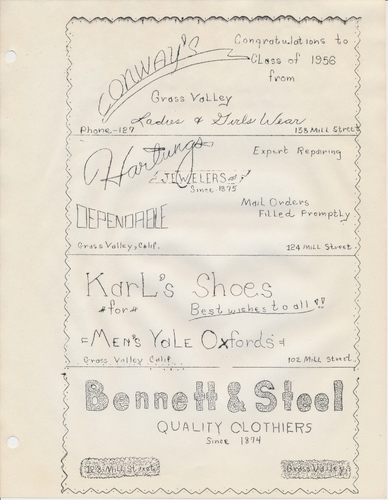 CONWAY'S
Congratulations to
Class of 1956
from
Grass Valley
Ladies & Girls Wear
Phone-187
138 Mill Street
Hartungs
Expert Repairing
JEWELERS
Since 1875
Mail Orders
Filled Promptly
DEPENDABLE
Grass Valley, Calif.
124 Mill Street
Karl's Shoes
#for#
Best wishes to all !!
=Men's Yale Oxfords=
Grass Valley Calif.
102 Mill Street
Bennett & Steel
QUALITY CLOTHIERS
Since 1874
Mill Street
Grass Valley